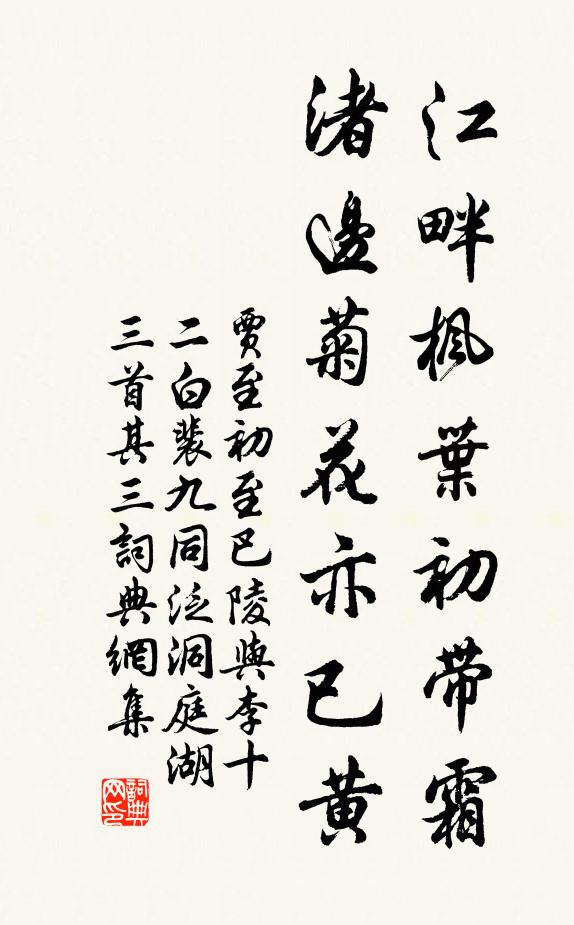 江畔楓葉初帶霜
渚邊菊花亦已黃
賈至初至巴陵與李十
二白裴九同泛洞庭湖
三首其三詞典網集
詞典網印